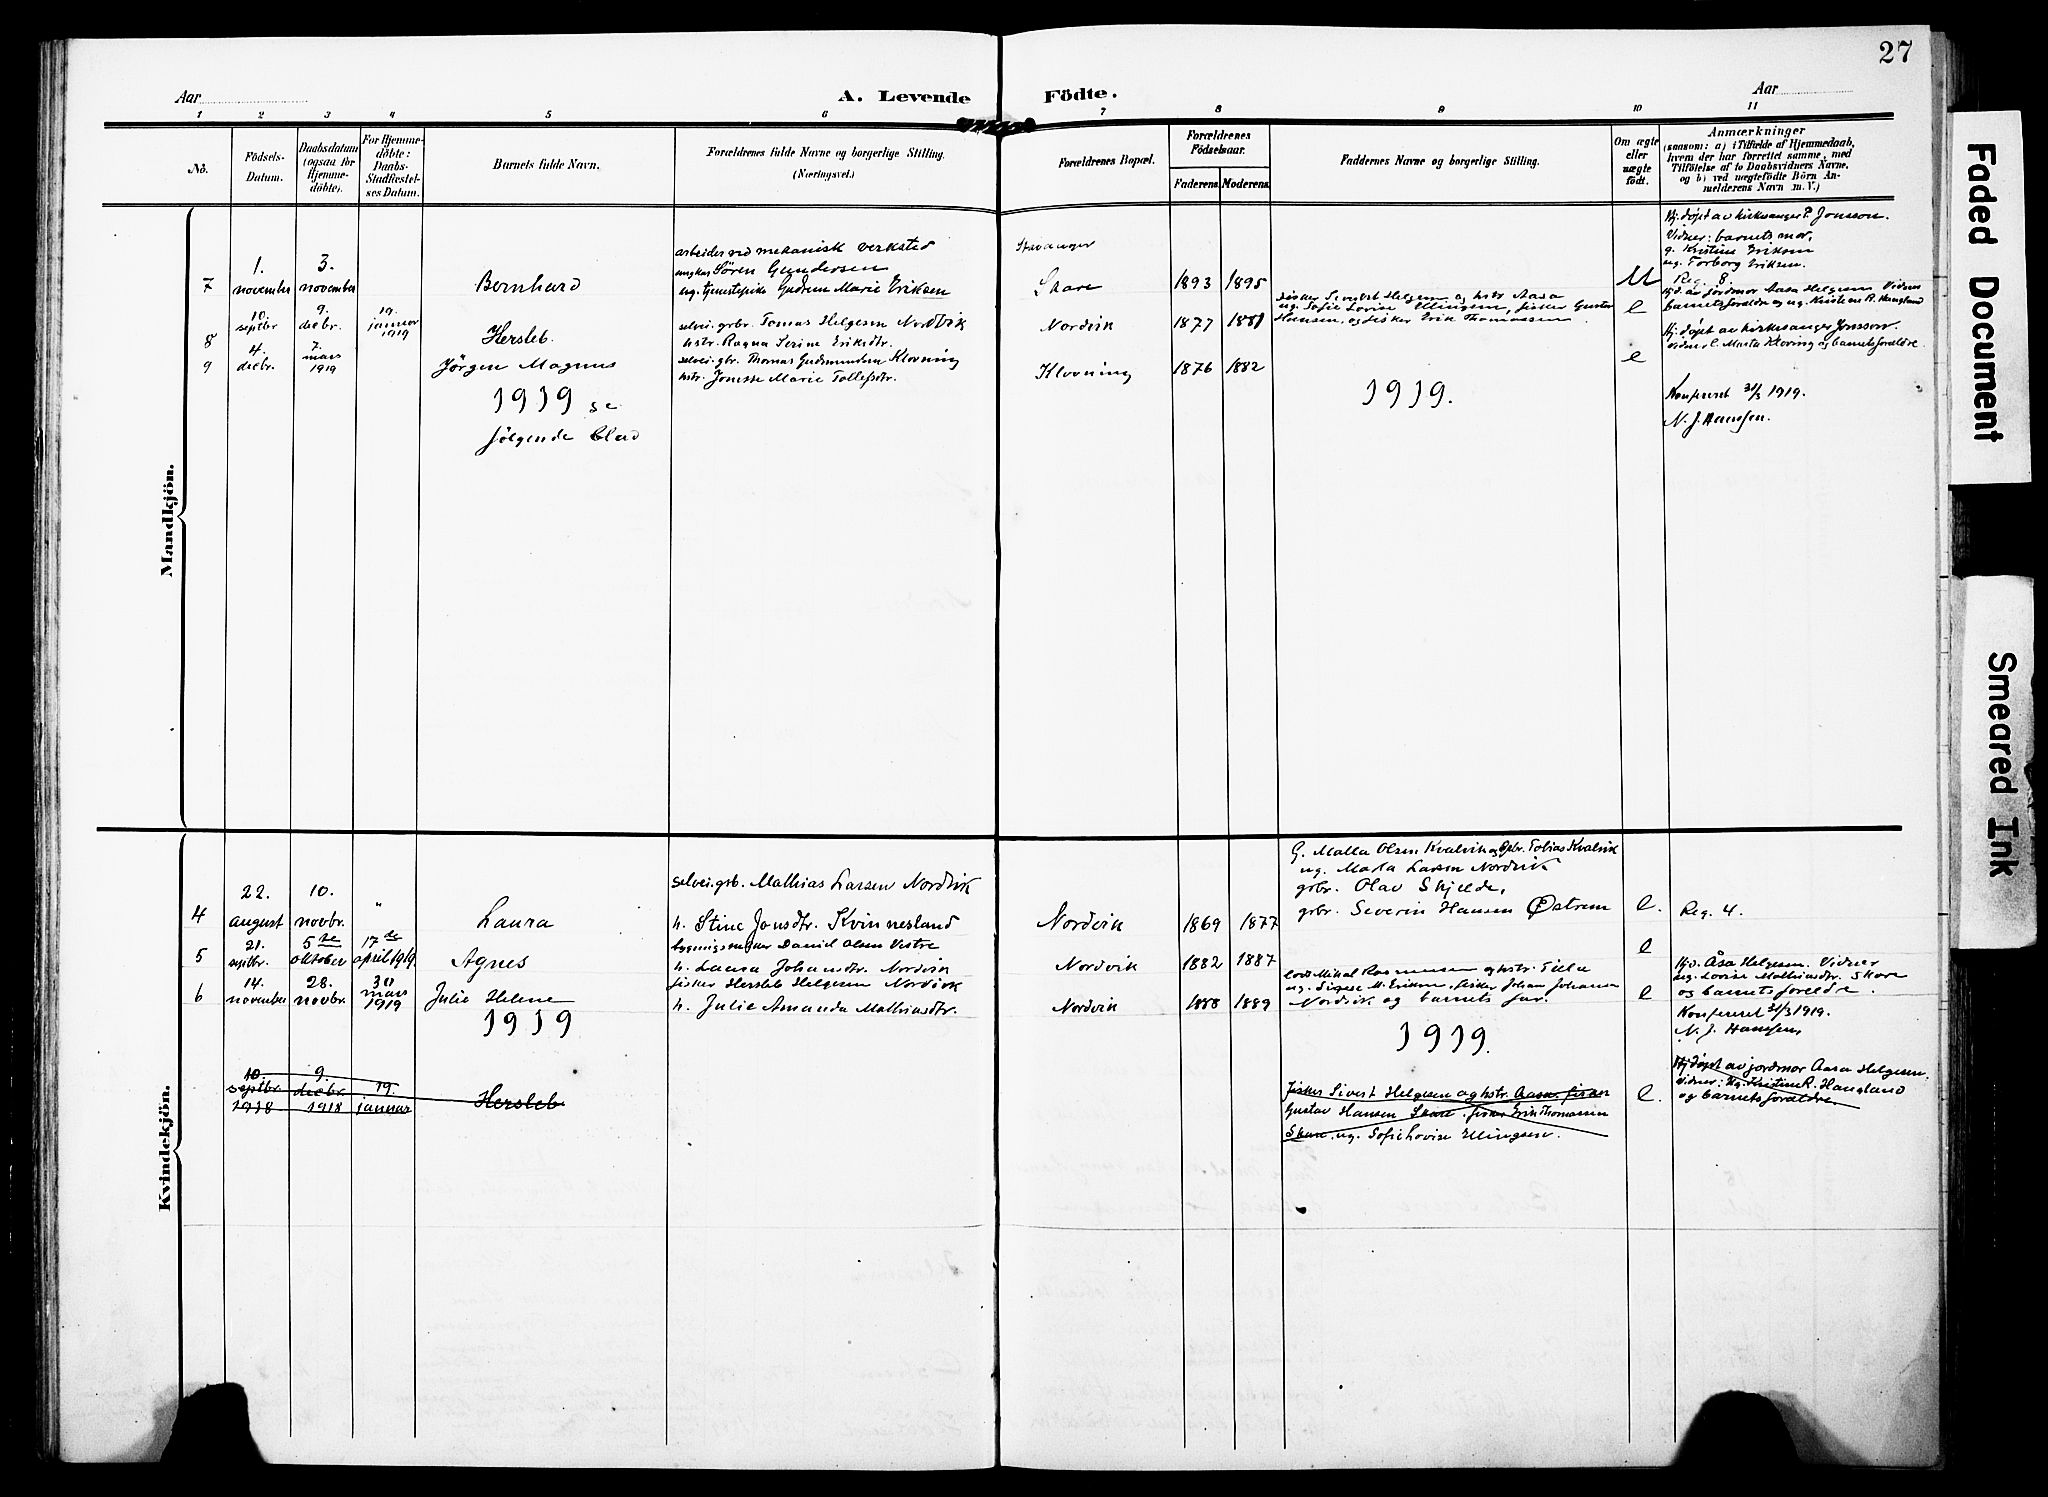 27
Aar
A. Levende Födte.
Aar
1 2 3 4 5 6 7 8 9 10 11
No.
Födsels-
Datum.
Daabsdatum
(ogsaa for
Hjemme-
döbte).
For Hjemme-
döbte:
Daabs-
Stadfæstel-
ses Datum.
Barnets fulde Navn.
Forældrenes fulde Navne og borgerlige Stilling.
(Næringsvei.)
Forældrenes Bopæl.
Forældrenes
Födselsaar.
Faderens. Moderens.
Faddernes Navne og borgerlige Stilling.
Om ægte
eller
uægte
født.
Anmærkninger
(saasom: a) i Tilfælde af Hjemmedaab,
hvem der har forrettet samme, med
Tilföielse af to Daabsvidners Navne.
og b) ved uægtefödte Börn An-
melderens Navn m. V.)
Mandkjön.
7
1.
november
3.
november
Bernhard
arbeider ved mekanisk verksted
ungkar Sören Gundersen
ug. tjenestepike Gudrun Marie Eriksen
Stavanger
Skare
1893 1895
U
Hj. døpt av kirkesanger P. Jonsson.
Vidner: barnets mor,
g. Kristine Eriksen
ug. Torborg Eriksen.
Reg. 8.
8
10.
septbr
9.
decbr.
19.
januar
1919
Hersleb.
selvei. grbr. Tomas Helgesen Nordvik
hstr. Ragna Serine Eriksdtr.
Nordvik
1877 1881
fisker Sivert Helgesen og hstr. Aasa
ug. Sofie Lovise Ellingsen, fisker Gustav
Hansen, og fisker Erik Thomassen.
e
Hjd. av jordmor Aasa Helgesen Vidner
barnets forældre og ug. Kristine R. Haugland
9
4.
decbr.
7.
mars
1919
Jörgen Magnus
selvei. gbr. Thomas Gudmundsen Klovning
hstr. Jonesse Marie Tollefsdtr.
Klovning
1876 1882
e
Hj. døpt av kirkesanger Jonsson.
vidner: Marta Klovning og barnets forældre.
1919 se
følgende blad
1919.
Konfereret 31/3 1919.
N. J. Hansen.
Kvindekjön.
4
22.
august
10.
novbr.
"
Laura
selvei. grb. Mathias Larsen Nordvik
h. Stine Jonsdtr. Kvinnesland
Nordvik
1869 1877
G. Malla Olsen Kvalvik og Gbr. Tobias Kvalvik
ug. Marta Larsen Nordvik
grbr. Olav Skjelde,
grbr. Severin Hansen Østrem
e.
Reg. 4.
5
21.
septbr.
5te
oktober
17de
april 1919
Agnes
bygningssnekker Daniel Olsen Vestre
h. Laura Johansdtr. Nordvik
Nordvik
1882 1887
e
6
14.
november
28.
novbr.
30
mars
1919
Julie Helene
fisker Hersleb Helgesen Nordvik
h. Julie Amanda Mathiasdtr.
Nordvik
1888 1889
lods Mikal Rasmussen og hstr. Tilla
ug. M. Eriksen, fisker Johan Johansen
Nordvik og barnets far.
e
Hjd. Åsa Helgesen. Vidner
ug. Lovise Mathiasdtr. Skare
og barnets foreldre.
Konfereret 31/3 1919.
N. J. Hansen,
1919
1919.
10.
septbr.
1918
9.
decbr.
1918
19.
januar
Hersleb
fisker Sivert Helgesen og hstr. Aasa, fisker
Gustav Hansen Skare, fisker Erik Thomassen
Skare, ug. Sofie Lovise Ellingsen.
e.
Hj. døpt av jordmor Aasa Helgesen.
vidner: Ug. Kristine R. Haugland
og barnets forældre.
Faded Document
Smeared Ink